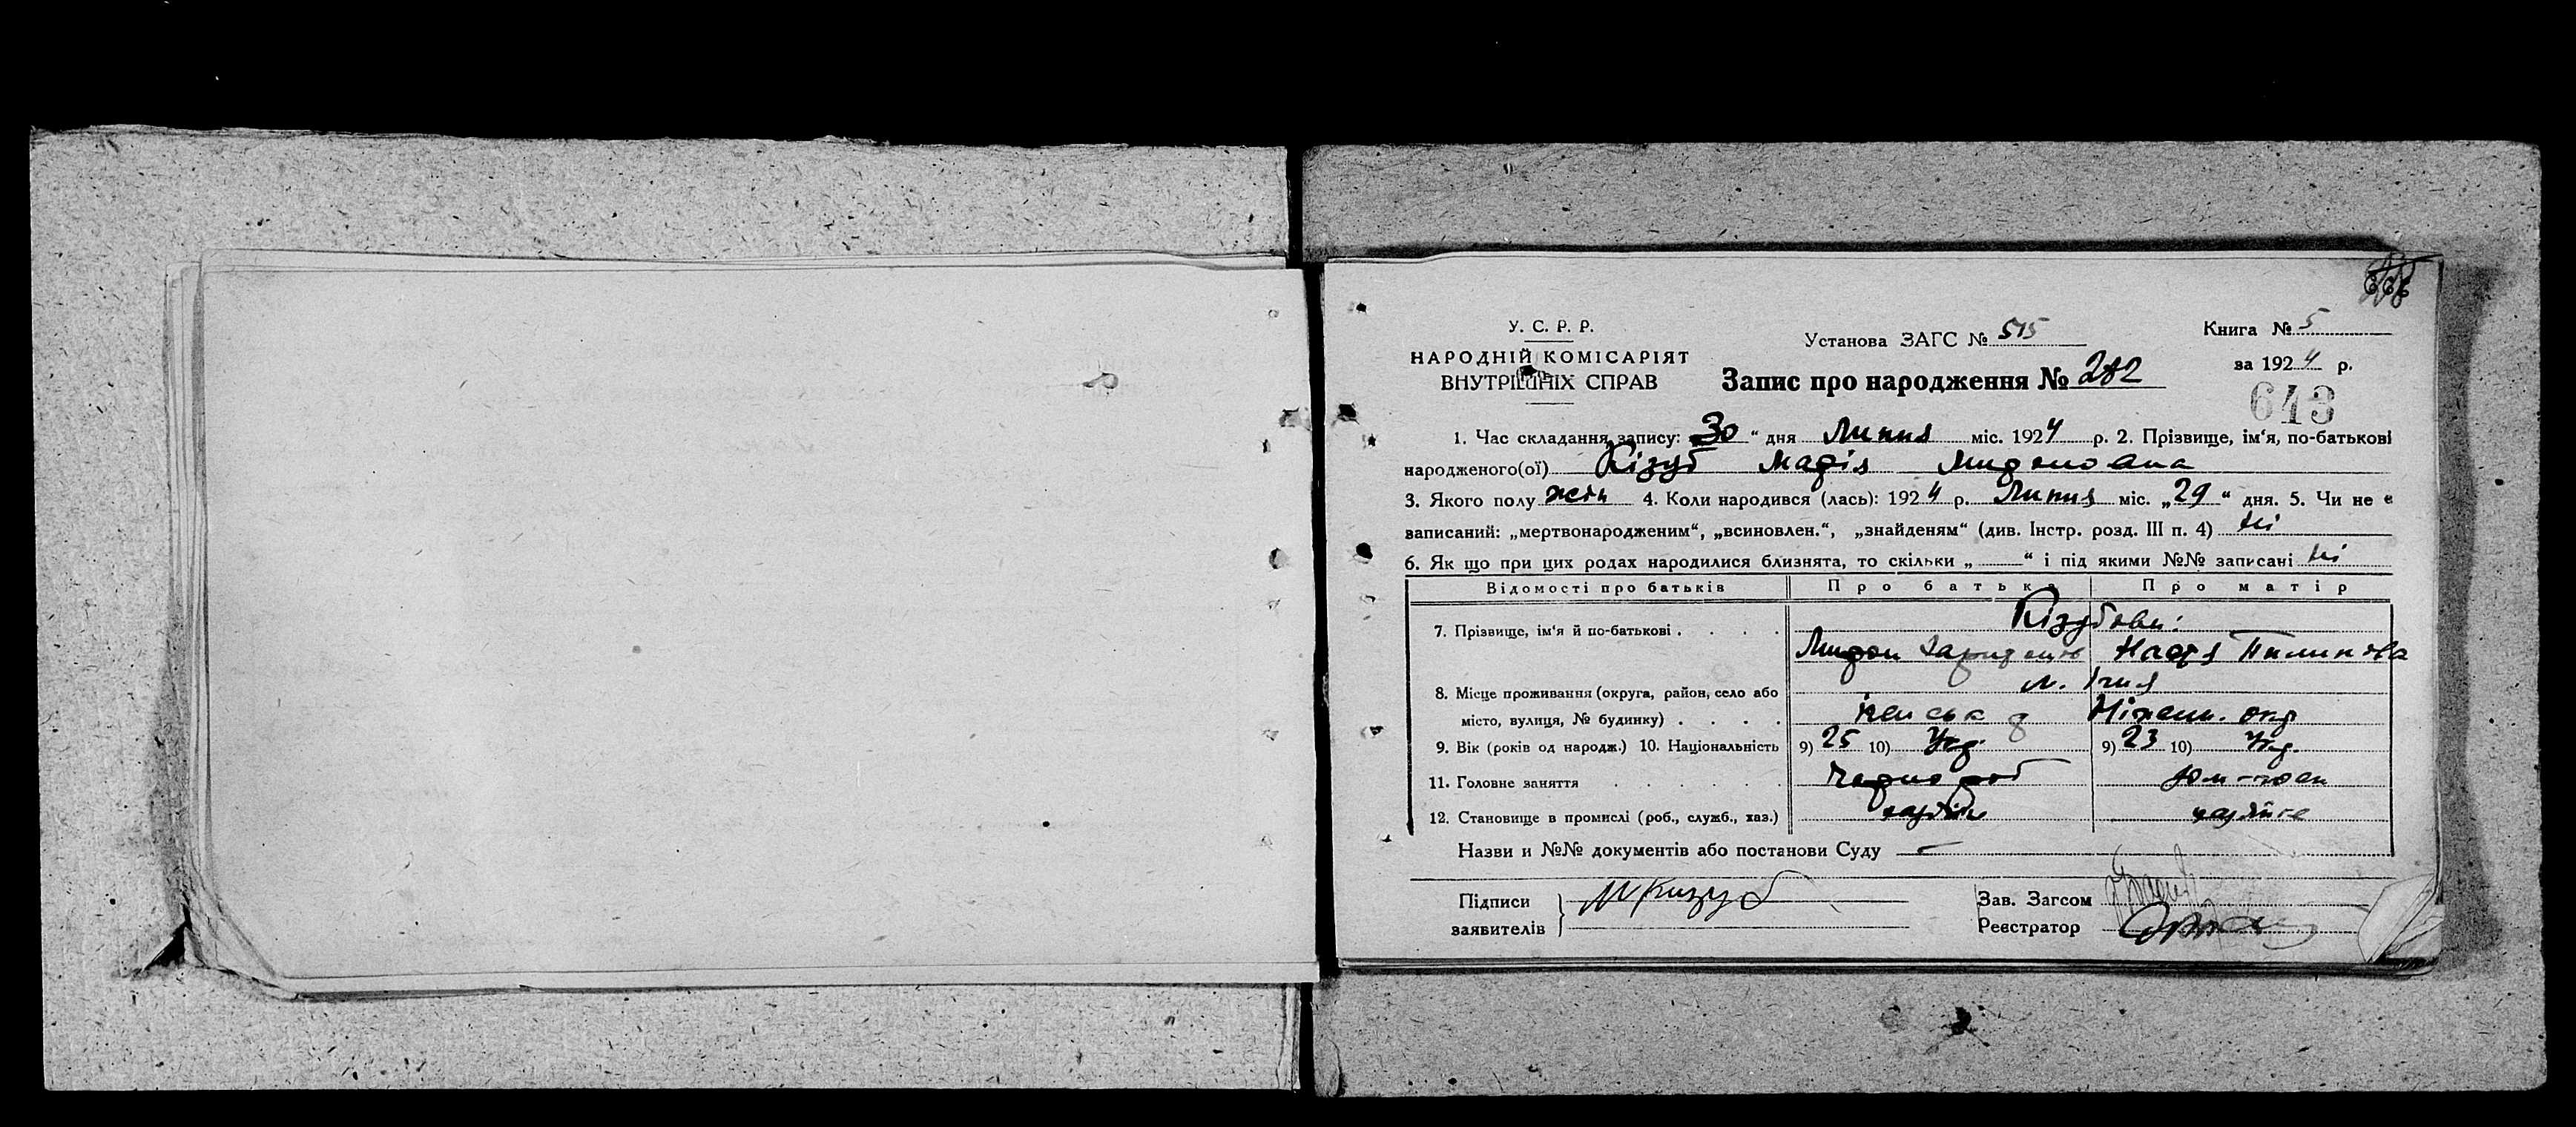 У. С. Р. Р.
НАРОДНІЙ КОМІСАРІЯТ
ВНУТРІШНІХ СПРАВ
Установа ЗАГС № 515
Запис про народження № 282
Книга № 5
за 1924 р.
643
1. Час складання запису: „30“ дня Липня міс. 1924 р. 2. Прізвище, ім‘я, по-батькові
народженого(ої) Кізуб Марія Миронова
3. Якого полу жін 4. Коли народився (лась): 1924 р. Липня міс. „29“ дня. 5. Чи не є
записаний: „мертвонародженим“, „всиновлен.“, „знайденям“ (див. Інстр. розд. III п. 4) ні
6. Як що при цих родах народилися близнята, то скільки „ “ і під якими №№ записані ні
Відомості про батьків Про батька Про матір
Кізубови:
7. Прізвище, ім‘я й по-батькові . . . .
Мирон Надія
м. Ічня
8. Місце проживання (округа, район, село або
місто, вулиця, № будинку) . . . . Ніженс. окр
9. Вік (років од народж.) 10. Національність 9) 25 10) Укр. 9) 23 10) Укр.
11. Головне заняття . . . . . . Чорнороб
12. Становище в промислі (роб., служб., хаз.) хазяїн
Назви и №№ документів або постанови Суду —
Підписи
заявителів
М Кизуб
Зав. Загсом
Реєстратор